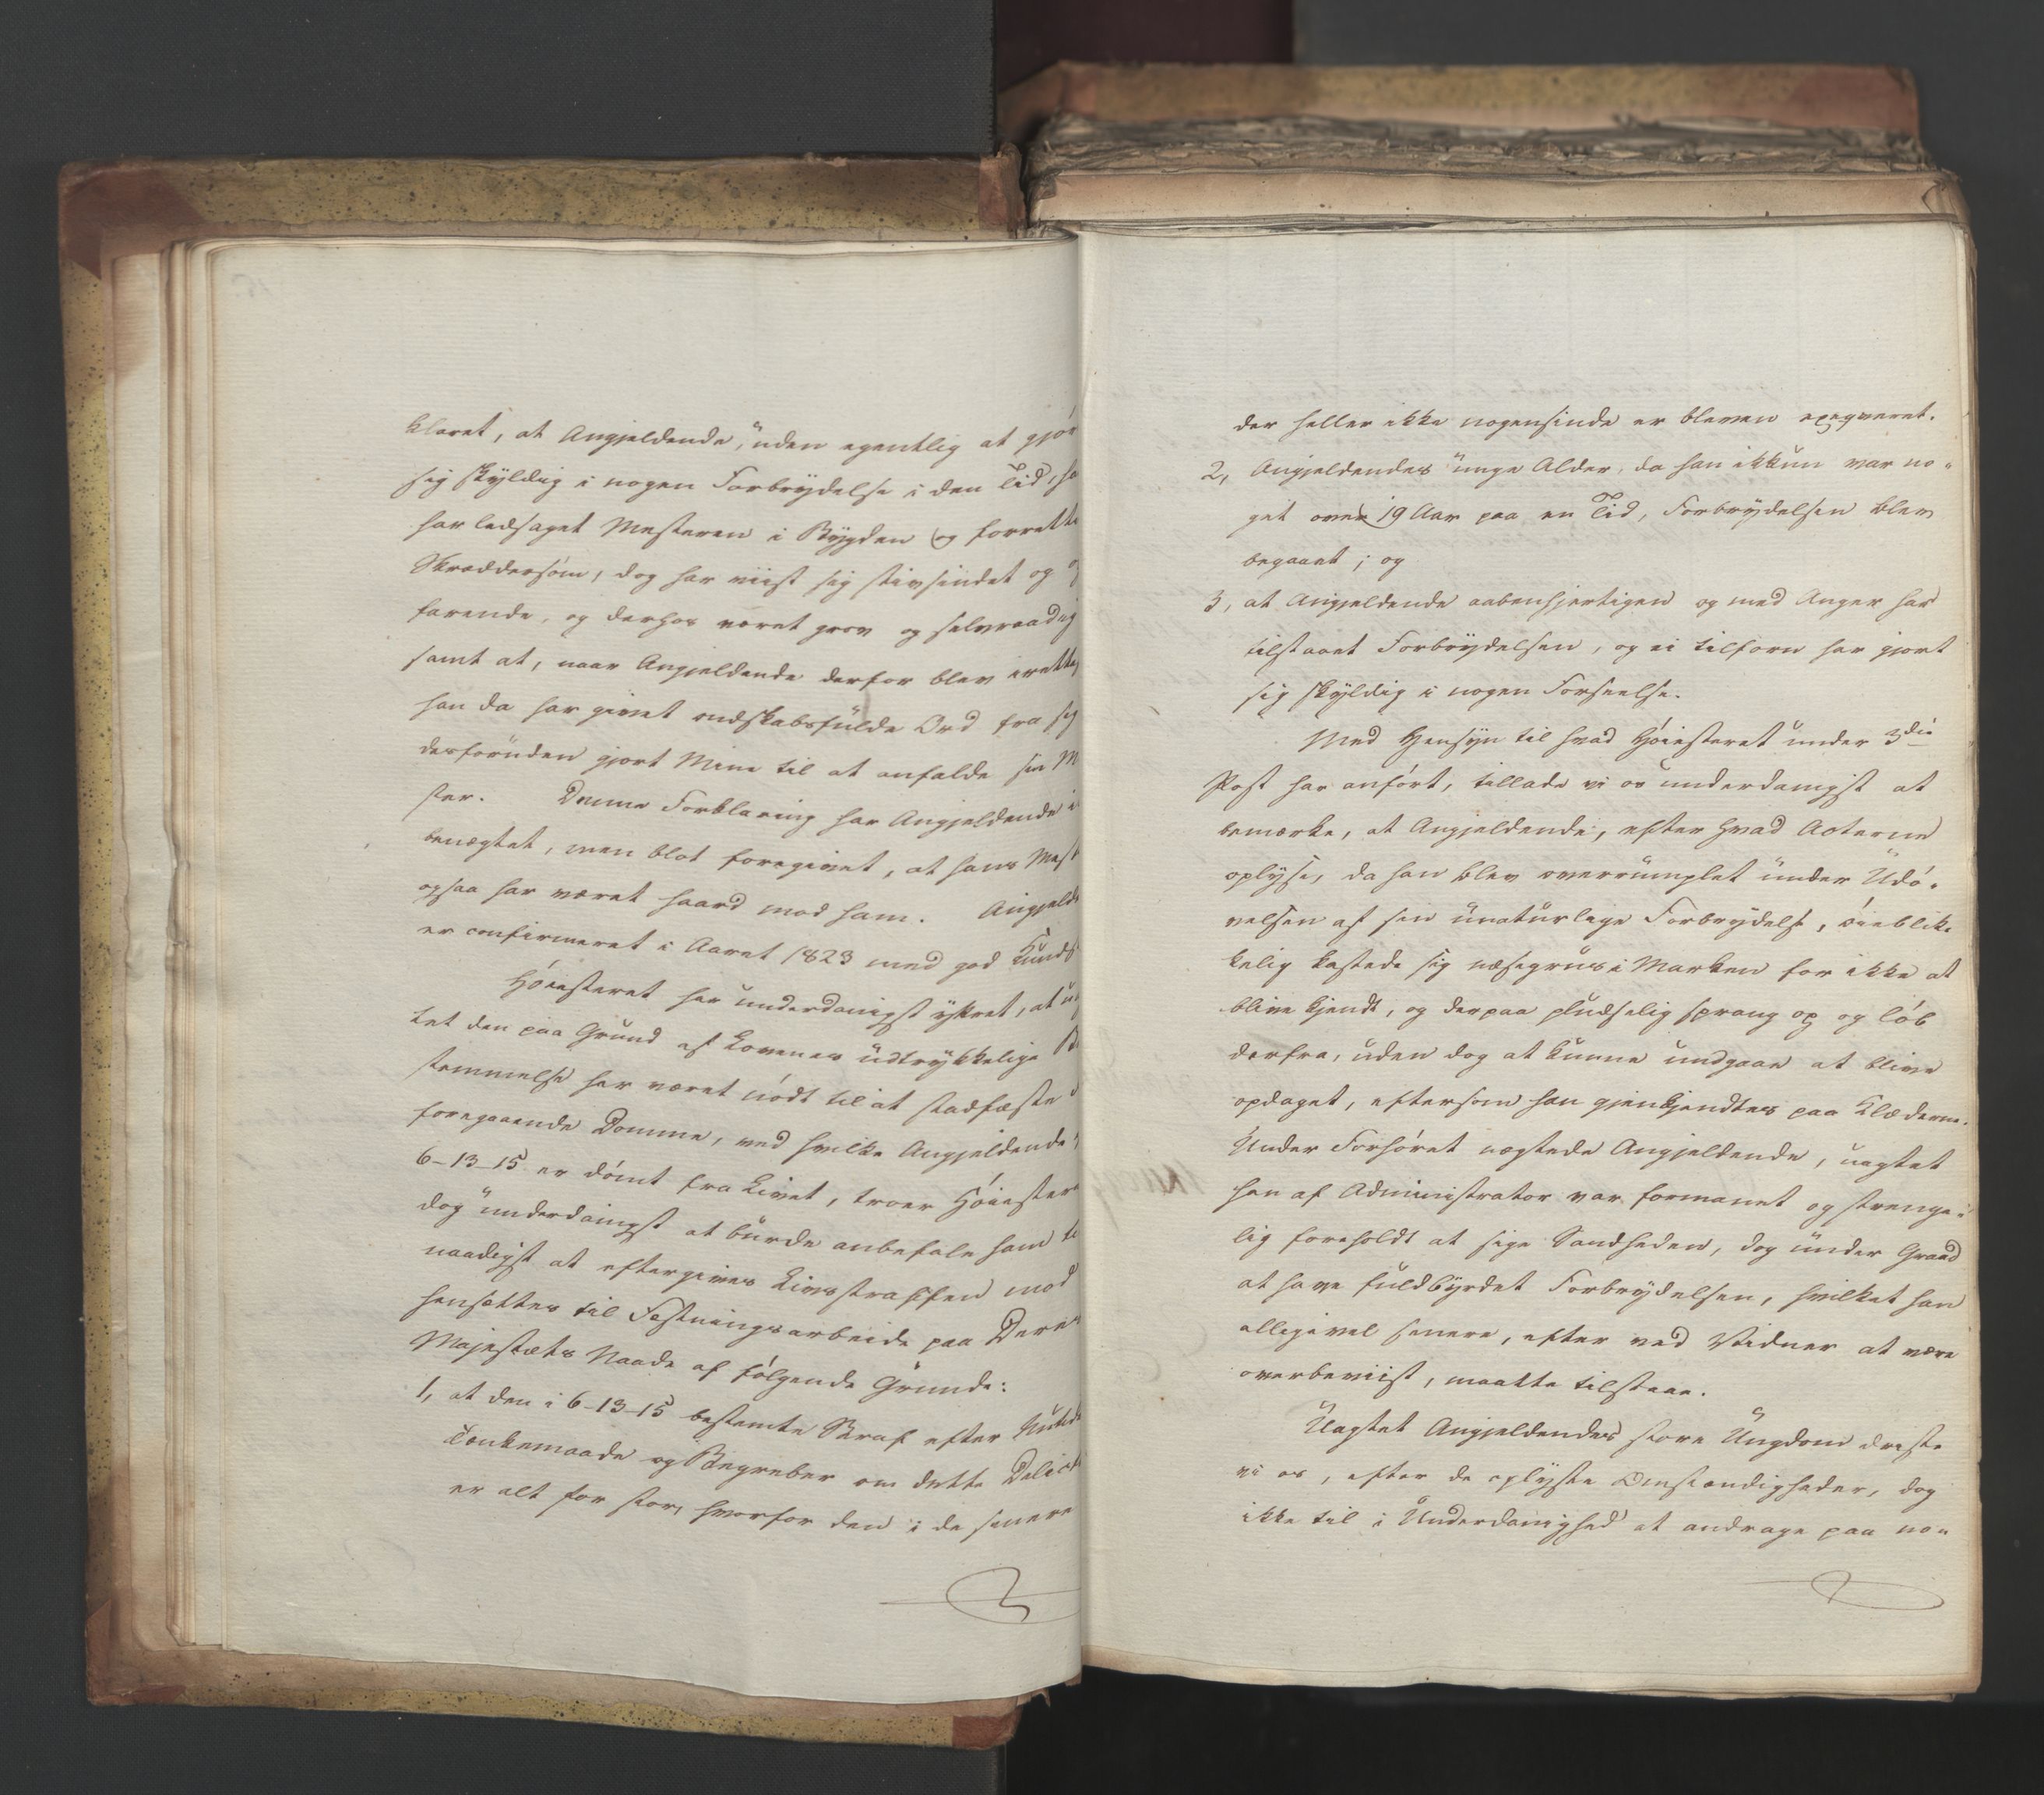 klaret, at Angjeldende, uden egentlig at gjør
sig skyldig i nogen Forbrydelse i den Tid, ha
har ledsaget Mesteren i Bygden og forrette
Skræddersøm, dog har viist sig stivsindet og o
farende, og derhos været grov og selvraadig
samt at, naar Angjeldende derfor blev irettes
han da har givet ondskabsfulde Ord fra sig
desforuden gjort Mine til at anfalde sin M
ster. Denne Forklaring har Angjeldende i
benægtet, men blot foregivet, at hans Mest
ogsaa har været haard mod ham. Angjeld
er confirmeret i Aaret 1823 med god Kunds
Høiesteret har underdanigst yttret, at u
tet den paa Grund af Lovenes udtrykkelige B
stemmelse har været nødt til at stadfæste d
foregaaende Domme, ved hvilke Angjeldende
6-13-15 er dømt fra Livet, troer Høiester
dog underdanigst at burde anbefale ham ti
naadigst at eftergives Livsstraffen mod
hensættes til Fæstningsarbeide paa Deres
Majestæts Naade af følgende Grunde:
1, at den i 6-13-15 bestemte Straf efter Nutid
Tænkemaade og Begreber om dette Delict
er alt for stor, hvorfor den i de senere
der heller ikke nogensinde er bleven exeqveret.
2, Angjeldendes unge Alder, da han ikkun var no-
get over 19 Aar paa en Tid, Forbrydelsen blev
begaaet; og
3, at Angjeldende aabenhjertigen og med Anger har
tilstaaet Forbrydelsen, og ei tilforn har gjort
sig skyldig i nogen Forseelse.
Med Hensyn til hvad Høiesteret under 3die
Post har anført, tillade vi os underdanigst at
bemærke, at Angjeldende, efter hvad Acterne
oplyse, da han blev overrumplet under Udø-
velsen af sin unaturlige Forbrydelse, øieblik-
kelig kastede sig næsegruus i Marken for ikke at
blive kjendt, og derpaa pludselig sprang op og løb
derfra, uden dog at kunne undgaae at blive
opdaget, eftersom han gjenkjendtes paa Klæderne.
Under Forhøret nægtede Angjeldende, uagtet
han af Administrator var formanet og strenge-
lig foreholdt at sige Sandheden, dog under Graad
at have fuldbyrdet Forbrydelsen, hvilket han
alligevel senere, efter ved Vidner at være
overbeviist, maatte tilstaae.
Uagtet Angjeldendes store Ungdom driste
vi os, efter de oplyste Omstændigheder, dog
ikke til i Underdanighed at andrage paa no-